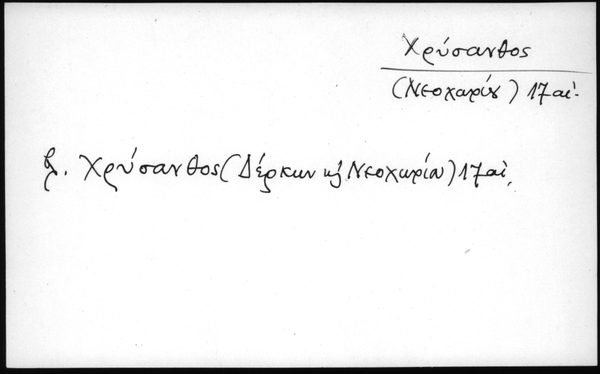 Χρύσανθος
(Νεοχωρίου) 17 αἰ.
βλ. Χρύσανθος (Δέρκων κ Νεοχωρίου) 17 αἰ.